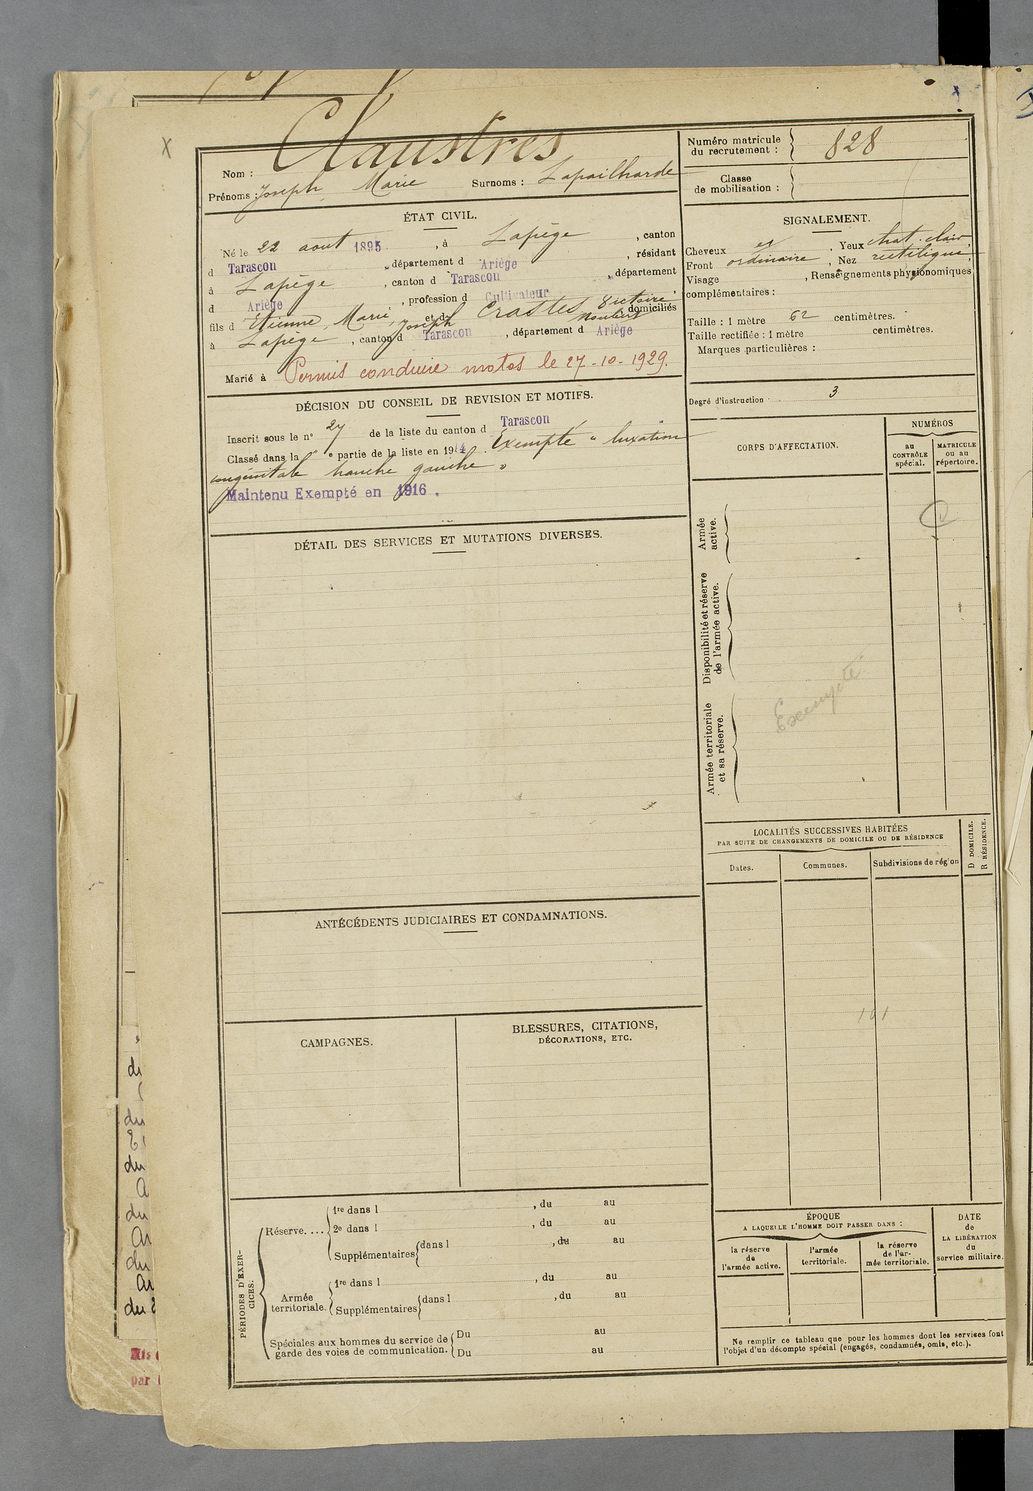 Claustres
Nom :
Prénoms : Joseph Marie Surnoms : Lapailharde
Numéro matricule
du recrutement : 828
Classe
de mobilisation :
ÉTAT CIVIL.
Né le 22 aout 1895, à Lapège, canton
d Tarascon, département d Ariège, résidant
à Lapège, canton d Tarascon, département
d Ariège, profession d Cultivateur
fils d Etienne, Marie, Joseph et d Crastes Victoire domiciliés
à Lapège, canton d Tarascon, département d Ariège
Marié à Permis conduire motos le 27-10-1929.
SIGNALEMENT.
Cheveux Yeux chat. clair
Front ordinaire, Nez rectiligne
Visage , Renseignements physionomiques
complémentaires :
Taille : 1 mètre 62 centimètres.
Taille rectifiée : 1 mètre centimètres.
Marques particulières :
Degré d'instruction 3
DÉCISION DU CONSEIL DE REVISION ET MOTIFS.
Inscrit sous le n° 27 de la liste du canton d Tarascon
Classé dans la " e partie de la liste en 1914. Exempté " luxation
congénitale hanche gauche "
Maintenu Exempté en 1916.
CORPS D'AFFECTATION.
NUMÉROS
au
CONTRÔLE
spécial.
MATRICULE
ou au
répertoire.
Armée
active.
Disponibilité et réserve
de l'armée active.
Armée territoriale
et sa réserve.
Exempté
DÉTAIL DES SERVICES ET MUTATIONS DIVERSES.
LOCALITÉS SUCCESSIVES HABITÉES
PAR SUITE DE CHANGEMENTS DE DOMICILE OU DE RÉSIDENCE
Dates.
Communes.
Subdivisions de région
D DOMICILE.
R RÉSIDENCE.
ANTÉCÉDENTS JUDICIAIRES ET CONDAMNATIONS.
CAMPAGNES.
BLESSURES, CITATIONS,
DÉCORATIONS, ETC.
PÉRIODES D'EXER-
CICES.
Réserve....
1re dans l , du au
2e dans l , du au
Supplémentaires dans l , du au
Armée
territoriale.
1re dans l , du au
Supplémentaires dans l , du au
Spéciales aux hommes du service de
garde des voies de communication.
Du au
Du au
ÉPOQUE
A LAQUELLE L'HOMME DOIT PASSER DANS :
la réserve
de
l'armée active.
l'armée
territoriale.
la réserve
de l'ar-
mée territoriale.
DATE
de
LA LIBÉRATION
du
service militaire.
Ne remplir ce tableau que pour les hommes dont les services font
l'objet d'un décompte spécial (engagés, condamnés, omis, etc.).